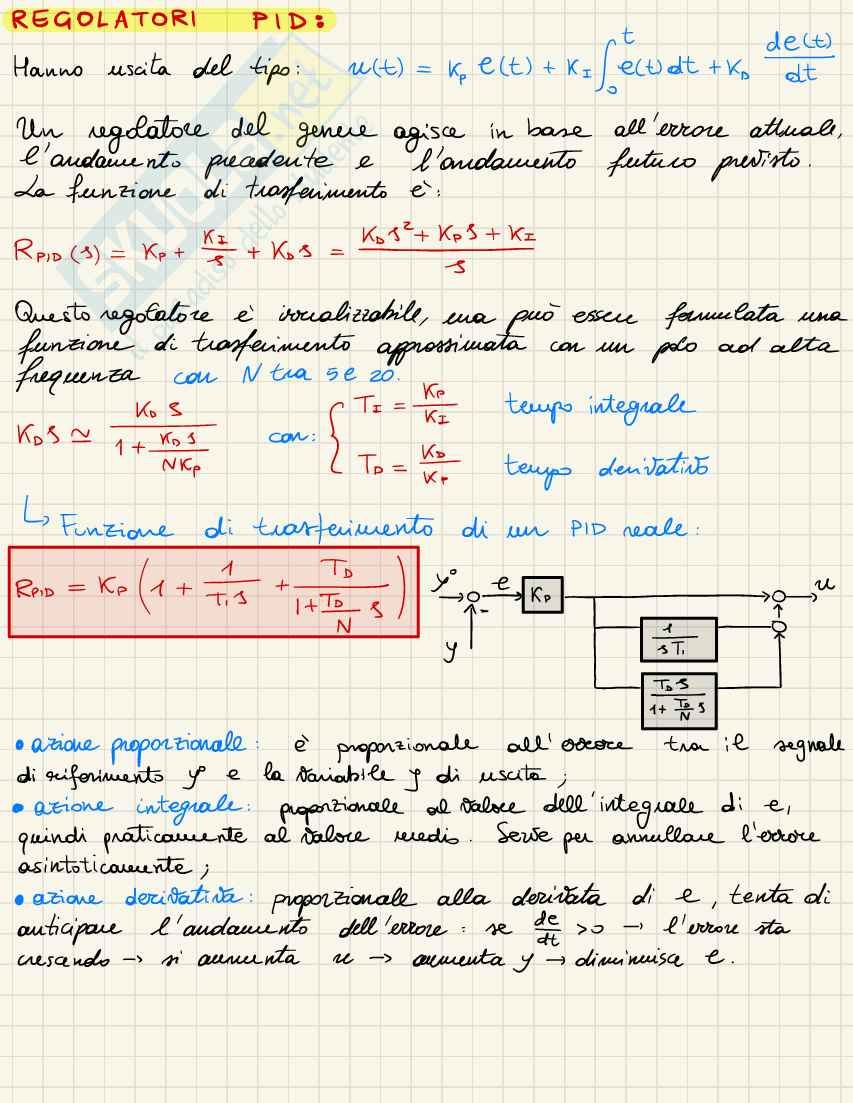 REGOLATORI PID:
Hanno uscita del tipo: u(t) = Kp e(t) + KI ∫₀ᵗ e(t) dt + KD de(t)/dt
Un regolatore del genere agisce in base all'errore attuale,
l'andamento precedente e l'andamento futuro previsto.
La funzione di trasferimento è:
RPID(s) = KP + KI/s + KD s = (KD s² + KP s + KI)/s
Questo regolatore è irrealizzabile, ma può essere formulata una
funzione di trasferimento approssimata con un polo ad alta
frequenza con N tra 5 e 20.
KD s ≃ KD s/(1 + KD s/(N KP)) con: { TI = KP/KI tempo integrale
TD = KD/KP tempo derivativo
↳ Funzione di trasferimento di un PID reale:
RPID = KP (1 + 1/(TI s) + TD/(1 + TD/N s))
y° e KP u
- y
1/(s TI)
TD s/(1 + TD/N s)
• azione proporzionale: è proporzionale all'errore tra il segnale
di riferimento y° e la variabile y di uscita;
• azione integrale: proporzionale al valore dell'integrale di e,
quindi praticamente al valore medio. Serve per annullare l'errore
asintoticamente;
• azione derivativa: proporzionale alla derivata di e, tenta di
anticipare l'andamento dell'errore: se de/dt > 0 → l'errore sta
crescendo → si aumenta u → aumenta y → diminuisce e.
SKUOLA.net
il paradiso dello studente